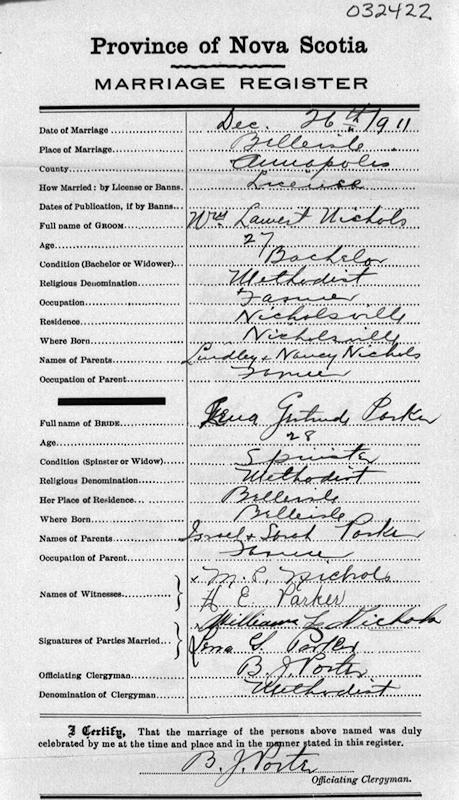 032422
Province of Nova Scotia
MARRIAGE REGISTER
Date of Marriage Dec. 26th 1911
Place of Marriage Belleisle
County Annapolis
How Married: by License or Banns. License
Dates of Publication, if by Banns
Full name of GROOM Wm Nichols
Age 27
Condition (Bachelor or Widower) Bachelor
Religious Denomination Methodist
Occupation Farmer
Residence Nicholsville
Where Born Nicholsville
Names of Parents Lindley + Nancy Nichols
Occupation of Parent Farmer
Full name of BRIDE Lena Gertrude Parker
Age 28
Condition (Spinster or Widow) Spinster
Religious Denomination Methodist
Her Place of Residence Belleisle
Where Born Belleisle
Names of Parents Israel + Sarah Parker
Occupation of Parent Farmer
Names of Witnesses x M. P. Nichols
H E Parker
Signatures of Parties Married x William L Nichols
Lena G Parker
Officiating Clergyman B. J. Porter
Denomination of Clergyman Methodist
I Certify, That the marriage of the persons above named was duly
celebrated by me at the time and place and in the manner stated in this register.
B. J. Porter
Officiating Clergyman.